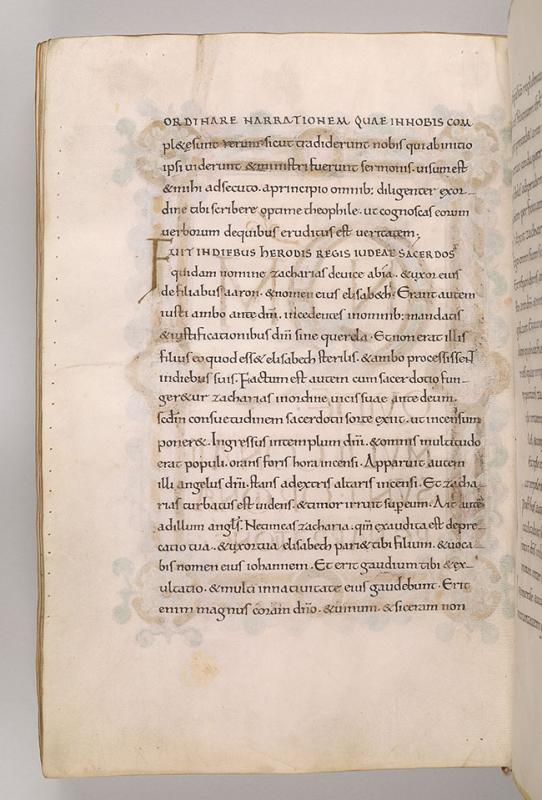 ORDINARE NARRATIONEM QUAE INNOBIS COM
pl&aelig;sunt rerum. sicut tradiderunt nobis qui ab initio
ipsi uiderunt &ministri fuerunt sermonis. uisum est
&mihi adsecuto. aprincipio omnib; diligenter exor
dine tibi scribere optime theophile. ut cognoscas eorum
uerborum dequibus eruditus est ueritatem;
FUIT INDIEBUS HERODIS REGIS IUDEAE SACERDOS
quidam nomine zacharias deuice abia. &uxor eius
defiliabus aaron. &nomen eius elisabeth. Erant autem
iusti ambo ante dm̅. incedentes inomnib; mandatis
&iustificationibus dni̅ sine querela. Et non erat illis
filius eo quod ess& elisabeth sterilis. &ambo processissent
indiebus suis. Factum est autem cum sacerdotio fun-
ger&ur zacharias inordine uicis suae ante deum.
scdm̅ consuetudinem sacerdotii sorte exiit. ut incensum
poner&. Ingressus intemplum dni̅. &omnis multitudo
erat populi. orans foris hora incensi. Apparuit autem
illi angelus dni̅. stans adextris altaris incensi. Et zacha-
rias turbatus est uidens. &timor irruit sup eum. Ait aute̅
adillum angls̅. Netimeas zacharia. qm̅ exaudita est depre-
catio tua. &uxor tua elisabeth pari& tibi filium. &uoca-
bis nomen eius iohannem. Et erit gaudium tibi &ex-
ultatio. &multi innatiuitate eius gaudebunt. Erit
enim magnus coram dno̅. &uinum. &siceram non